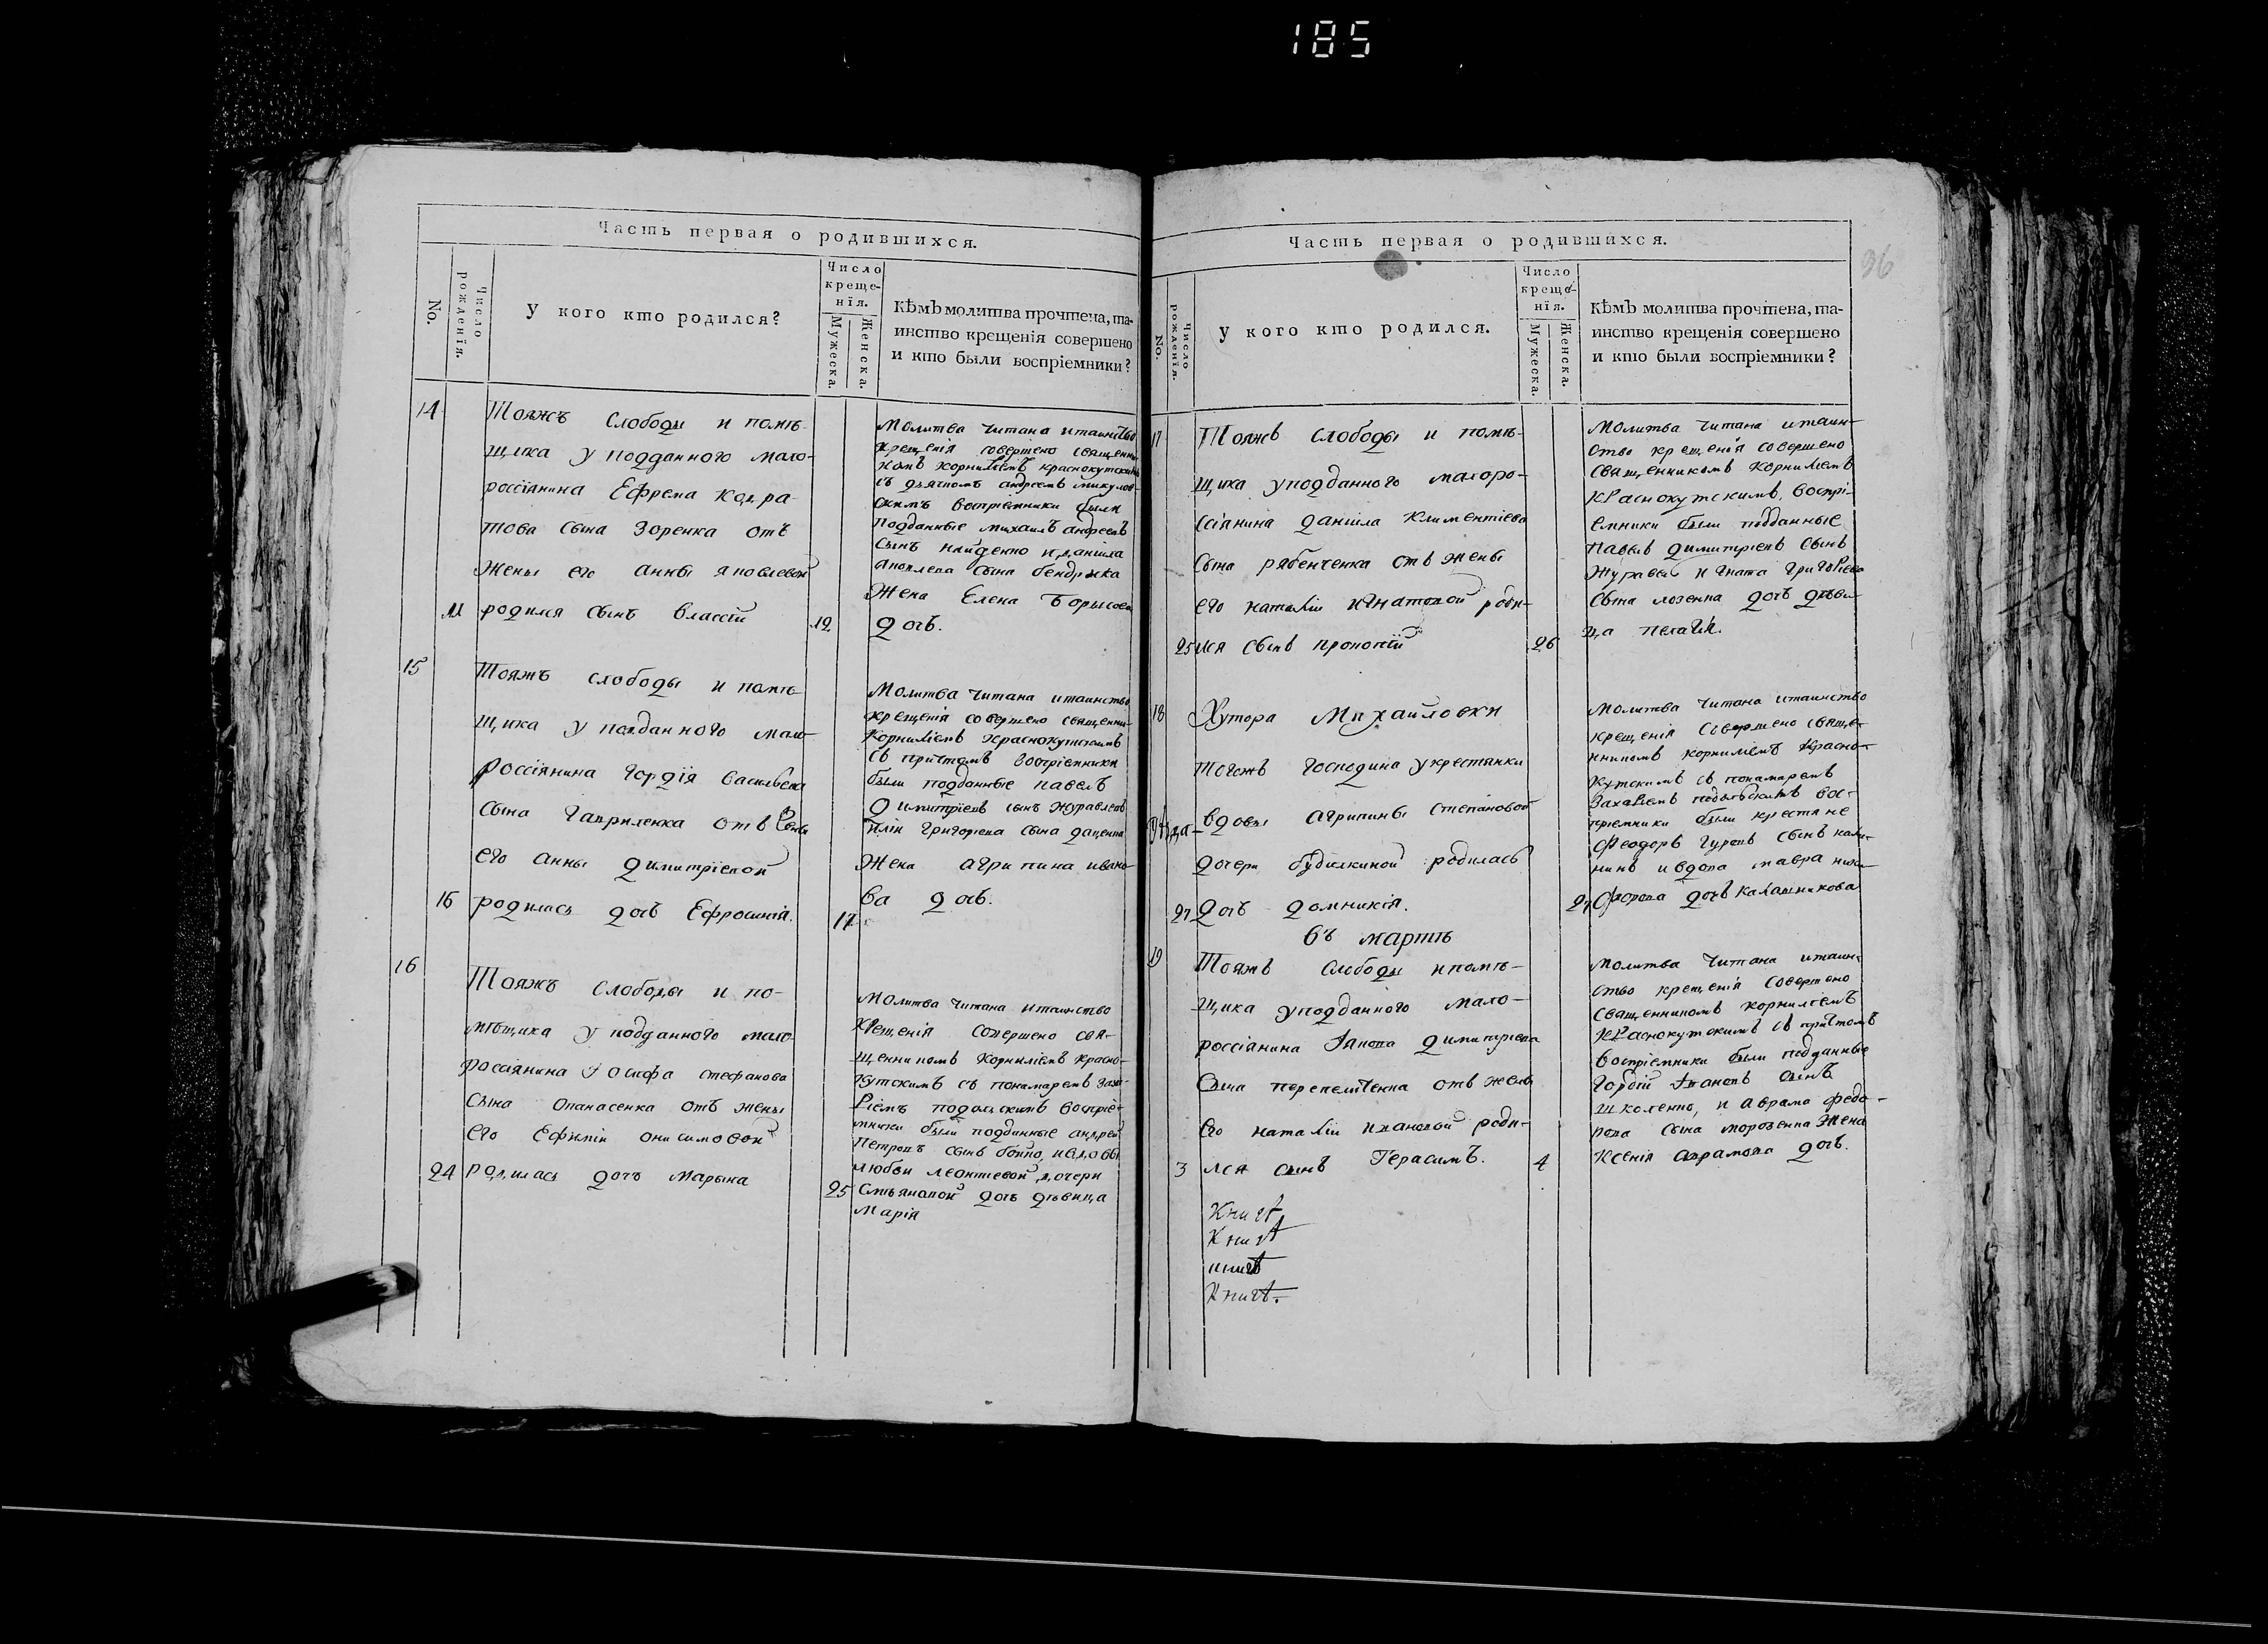 185
Часть первая о родившихся.
No.
Число рожденїя.
У кого кто родился?
Число
креще-
нїя.
Мужеска.
Женска.
Кѣмъ молитва прочтена, та-
инство крещенія совершено
и кто были воспріемники?
14
Тояжъ слободы и помѣ-
щика у подданного мало-
россіянина Ефрема Кодра-
това сына Зоренка отъ
жены его Анны Яковлевой
11 родился сынъ Власій
12
Молитва читана и таинство
крещенія совершено священни-
комъ Корниліемъ Краснокутскимъ
съ дьячкомъ Андреемъ Микулов-
скимъ воспріемники были
подданные Михаилъ Андреевъ
сынъ и Данила
Яковлева сына Бендюжка
жена Елена Борисова
дочь.
15
Тояжъ слободы и помѣ-
щика уподданного мало-
россіянина Гордїя Васильева
сына Гавриленка отъ жены
его Анны Димитрїевой
16 родилась дочь Ефросинія.
17
Молитва читана и таинство
крещенія совершено священни-
Корниліемъ Краснокутскимъ
съ причтомъ воспріемники
были подданные Павелъ
Димитріевъ сынъ Журавлевъ
Григоріева сына Даценка
жена Агрипина Ивано-
ва дочь.
16
Тояжъ слободы и по-
мѣщика у подданного мало-
россіянина Іосифа Стефанова
сына Опанасенка отъ жены
его Ефиміи Онисимовой
24 родилась дочь Марына
25
Молитва читана и таинство
крещенія совершено свя-
щенникомъ Корниліемъ Красно-
кутскимъ съ понамаремъ Заха-
ріемъ Подольскимъ воспріе-
мники были подданные Андрей
Петровъ сынъ Бойко, и вдовы
Любви Леонтіевой дочери
Смѣяновой дочь дѣвица
Марія
Часть первая о родившихся.
96
No.
Число рожденїя.
У кого кто родился.
Число
креще-
нїя.
Мужеска.
Женска.
Кѣмъ молитва прочтена, та-
инство крещенія совершено
и кто были воспріемники?
17
Тояжъ слободы и помѣ-
щика у подданного малоро-
ссіянина Даніила Климентіева
сына Рябенченка отъ жены
его Наталіи Игнатовой роди-
25 лся сынъ Прокопій
26
Молитва читана и таин-
ство крещенія совершено
священникомъ Корниліемъ
Краснокутскимъ, воспрі-
емники были подданные
Павелъ Димитріевъ сынъ
Журавель Игната Григоріева
сына Лозенка дочь дѣви-
ца Пелагія.
18
Хутора Михайловки
тогожъ господина у крестянки
вдовы Агрипины Степановой
дочери Будилкиной родилась
27 дочь Домникія.
27
Молитва читана и таинство
крещенія совершено священ-
нникомъ Корниліемъ Красно-
кутскимъ съ понамаремъ
Захаріемъ Подольскимъ вос-
пріемники были крестяне
Феодоръ Гуровъ сынъ Кали-
нинъ и вдова Мавра Ники-
форова дочь Калашникова
Въ мартѣ
19
Тояжъ слободы и помѣ-
щика у подданного мало-
россіянина Іакова Димитріева
сына Перепелченка отъ жены
его Наталіи Ивановой роди-
3 лся сынъ Герасимъ.
4
Молитва читана и таин-
ство крещенія совершено
священникомъ Корниліемъ
Краснокутскимъ съ причтомъ
воспріемники были подданные
Гордій Ивановъ сынъ
Школенко, и Аврама Федо-
рова сына Морозенка жена
Ксенія Аврамова дочь.